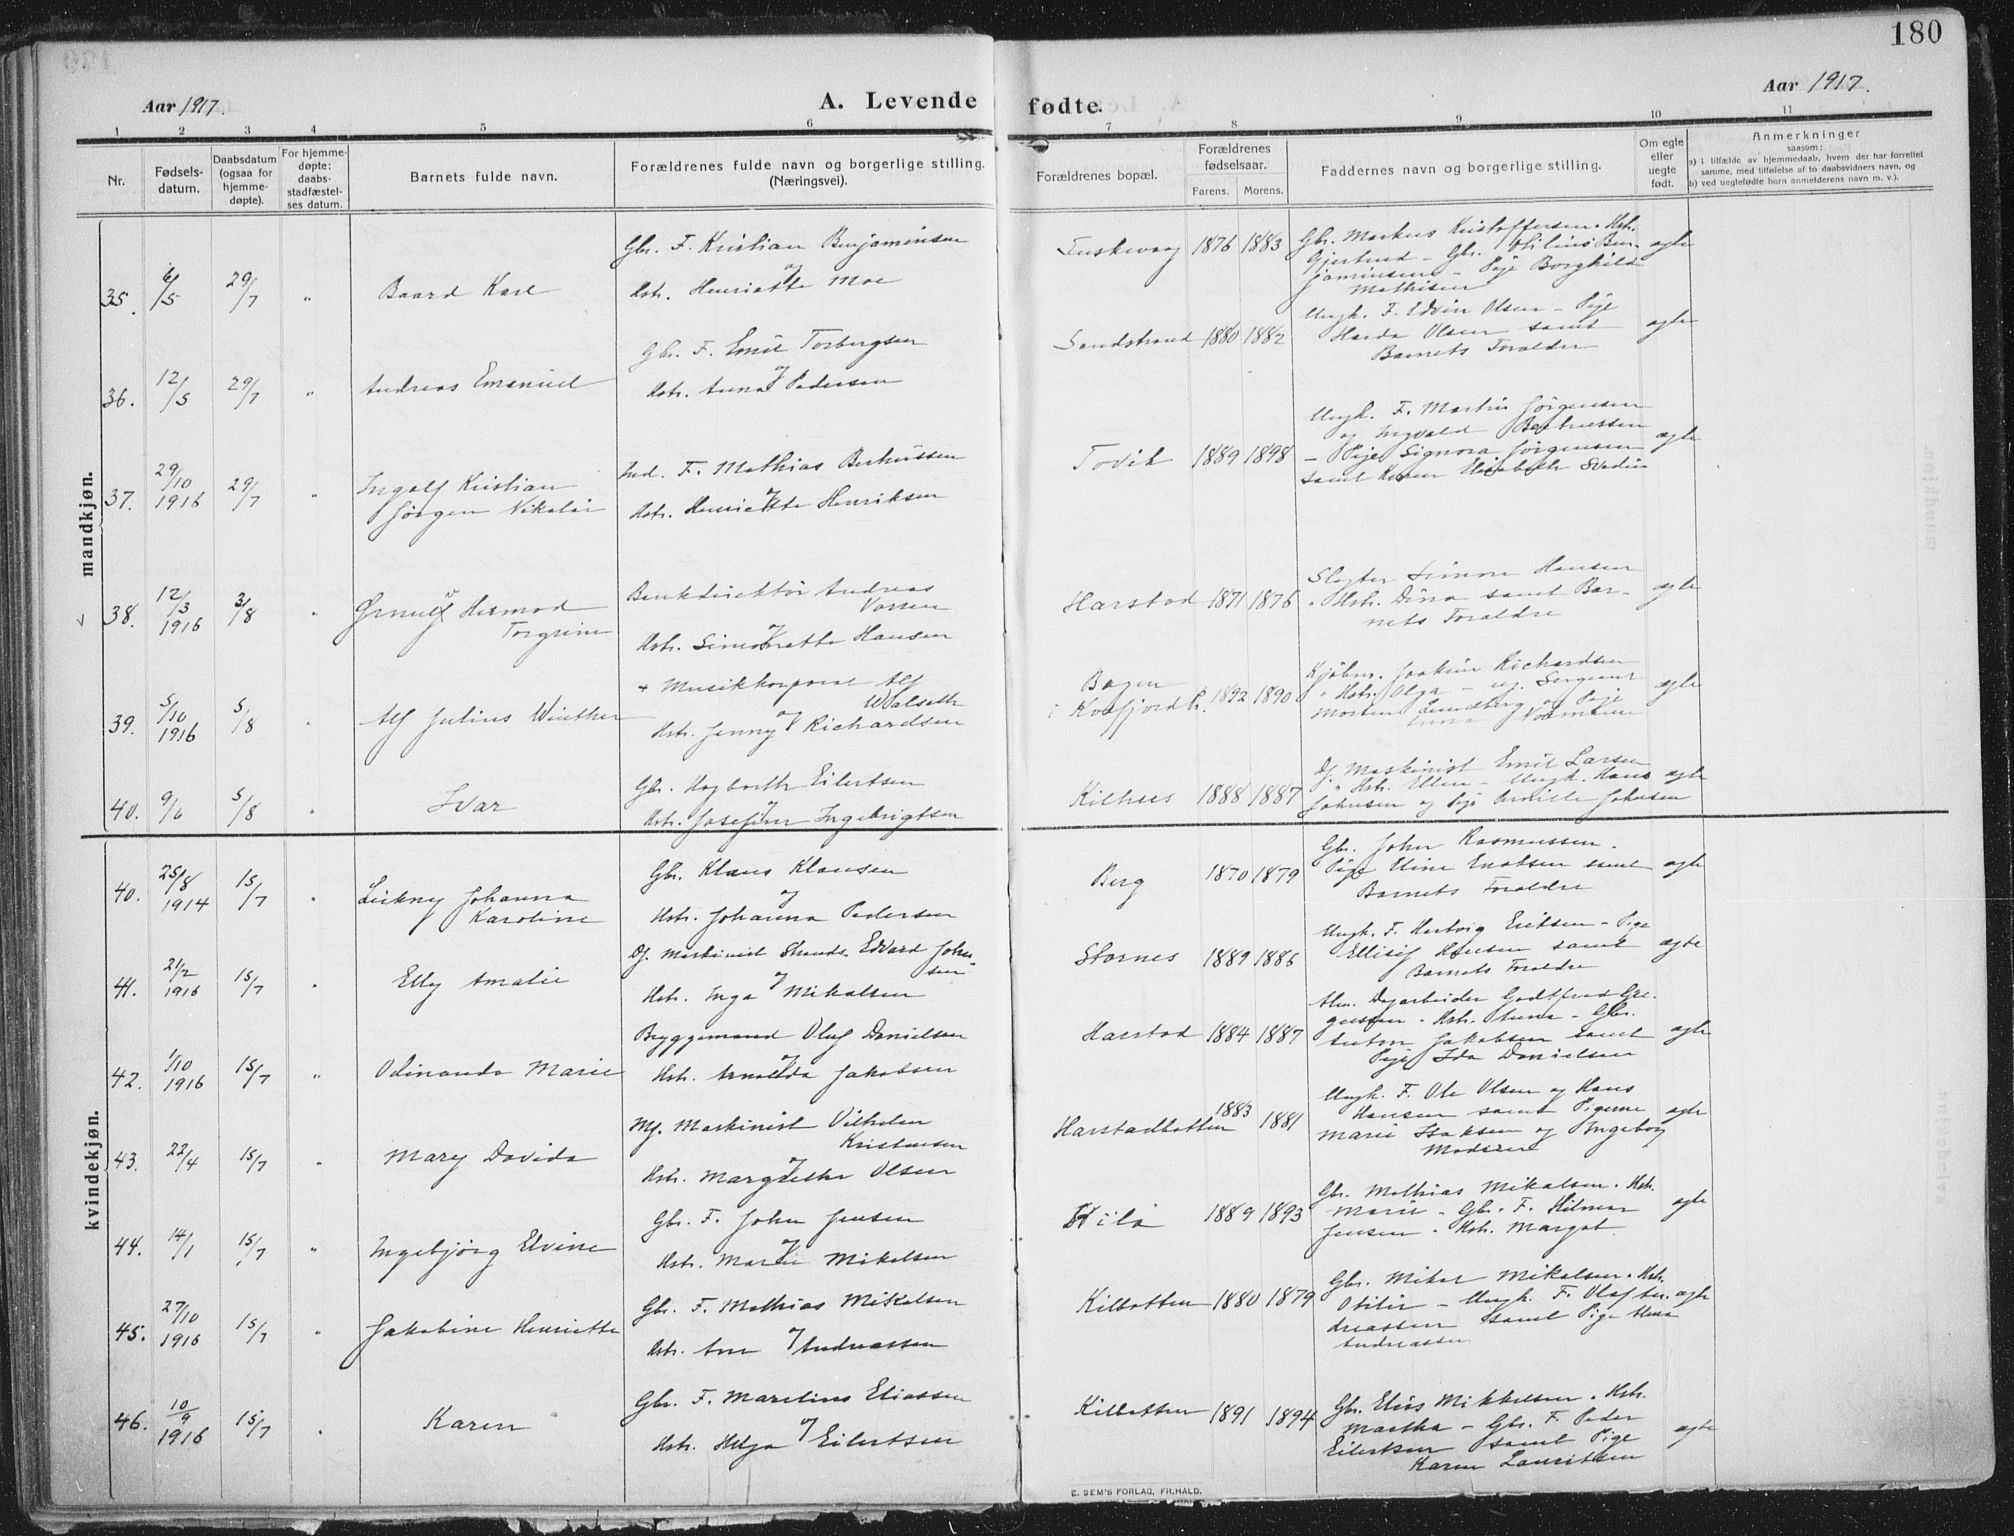 180
Aar 1917.
A. Levende fødte.
Aar 1917.
1 2 3 4 5 6 7 8 9 10 11
Nr.
Fødsels-
datum.
Daabsdatum
(ogsaa for
hjemme-
døpte).
For hjemme-
døpte;
daabs-
stadfæstel-
ses datum.
Barnets fulde navn.
Forældrenes fulde navn og borgerlige stilling.
(Næringsvei).
Forældrenes bopæl.
Forældrenes
fødselsaar.
Farens. Morens.
Faddernes navn og borgerlige stilling.
Om egte
eller
uegte
født.
Anmerkninger
saasom:
a) i tilfælde av hjemmedaab, hvem der har forrettet
samme, med tilføielse af to daabsvidners navn, og
b) ved uegtefødte barn anmelderens navn m. v.).
mandkjøn.
35. 6/5 29/7 " Baard Karl
Gbr. F. Kristian Benjaminsen
og
Hstr. Henriette Moe
1876 1883
Gbr. Markus Kristoffersen. Hstr.
Gjertrud - Gbr. Ben-
jaminsen - Pige Borghild
Mathisen
egte
36. 12/5 29/7 " Andreas Emanuel
Gbr. F. Emil Torbergsen
og
Hstr. Anna Pedersen
Sandstrand 1880 1882
Ungk. F. Edvin Olsen - Pige
Harda Olsen samt
Barnets Foraldre
egte
37. 29/10 1916 29/7 " Ingolf Kristian
Jørgen Nikolai
Ind. F. Mathias Berhussen
og
Hstr. Henriette Henriksen
Tovik 1889 1898
Ungk. F. Martin Jørgensen
og Ingvald Berhussen
- Pige Signora Jørgensen
samt Karen Elisabeth
egte
38. 12/3 1916 3/8 " Ørnulf Hermod
Torgrim
Bankdirektør Andreas
og
Hstr. Simonette Hansen
Harstad 1871 1876
Simon Hansen
" Hstr. Dina samt Bar-
nets Foraldre
egte
39. 5/10 1916 5/8 " Alf Julius Winther
+ Musikkorporal Alf
Walseth
og
Hstr. Jenny Richardsen
Bogen
i Kvæfjord P. 1892 1890
Kjøbm. Joakim Richardsen
" Hstr. Olga - ug. Sergeant
Morten Lundberg og Pige
egte
40. 9/6 5/8 " Ivar
Gbr. Hagbarth Eilertsen
og
Hstr. Josefine Ingebrigtsen
Kilhus 1888 1887
Df. Maskinist Emil Larsen
" Hstr. Ellen - Ungk. Hans
Johnsen og Pige Pernille Johnsen
egte
kvindekjøn.
40. 25/8 1914 15/7 " Johanna
Karoline
Gbr. Klaus Klausen
og
Hstr. Johanna Pedersen
Berg 1870 1879
Gbr. John Rasmussen.
Pige samt
Barnets Foraldre
egte
41. 21/2 1916 15/7 " Elly Amalie
Df. Maskinist Edvard Johan-
sen
og
Hstr. Inga Mikalsen
Stornes 1889 1886
Ungk. F. Hartvig Eriksen - Pige
Ellisif Hansen samt
Barnets Foraldre
egte
42. 1/10 1916 15/7 " Odinanda Marie
Bryggemand Oluf Danielsen
og
Hstr. Arnolda Jakobsen
Harstad 1884 1887
Alm. Dagarbeider Godtfred Gre-
gussen. Hstr. Anna - Gbr.
Anton Jakobsen samt
Pige Ida Danielsen
egte
43. 22/4 15/7 " Mary Davida
Mf. Maskinist Vilhelm
Kristensen
og
Hstr. Margrethe Olsen
Harstadbotten 1883 1881
Ungk. F. Ole Olsen og Hans
Hansen samt Pigerne
Marie Isaksen og Ingeborg
Madsen
egte
44. 14/1 15/7 " Ingebjørg Elvine
Gbr. F. John Jensen
og
Hstr. Marie Mikalsen
Kila 1889 1893
Gbr. Mathias Mikalsen. Hstr.
Marie - Gbr. F. Hilmar
Jensen - Hstr. Margot
egte
45. 27/10 1916 15/7 " Jakobine Henriette
Gbr. F. Mathias Mikalsen
og
Hstr. Ane Andreassen
Kilbotten 1880 1879
Gbr. Mikal Mikalsen. Hstr.
Otilie - Ungk. F. Olaf An-
dreassen samt Pige
Andreassen
egte
46. 10/9 1916 15/7 " Karen
Gbr. F. Marelius Eliassen
og
Hstr. Helga Eilertsen
Kilbotten 1891 1894
Gbr. Elias Mikkelsen. Hstr.
Martha - Gbr. F. Peder
Eilertsen samt Pige
Karen Lauritsen
egte
E. SEM'S FORLAG, FR.HALD.